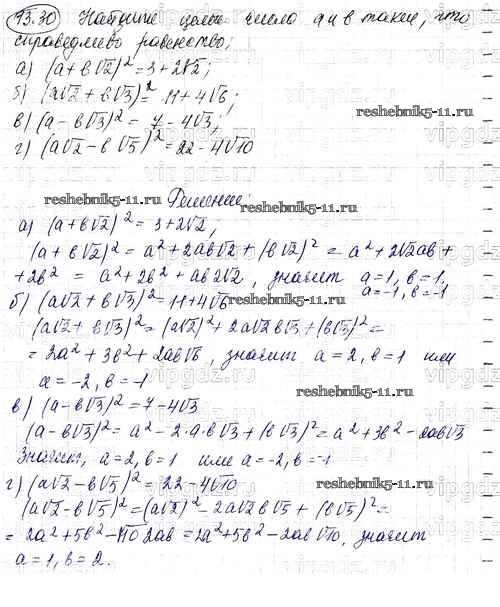 13.30 Найдите целые числа а и в такие, что
справедливо равенство;
а) (a + в√2)² = 3 + 2√2;
б) (a√2 + в√3)² = 11 + 4√6;
в) (a - в√3)² = 7 - 4√3;
г) (a√2 - в√5)² = 22 - 4√10
reshebnik5-11.ru
reshebnik5-11.ru
Решение:
а) (a + в√2)² = 3 + 2√2,
(a + в√2)² = a² + 2ab√2 + (в√2)² = a² + 2√2ab +
+ 2в² = a² + 2в² + ab2√2, значит a = 1, в = 1.
a = -1, в = -1
б) (a√2 + в√3)² = 11 + 4√6
reshebnik5-11.ru
(a√2 + в√3)² = (a√2)² + 2a√2в√3 + (в√3)² =
= 2a² + 3в² + 2ab√6, значит a = 2, в = 1 или
a = -2, в = -1
reshebnik5-11.ru
в) (a - в√3)² = 7 - 4√3
(a - в√3)² = a² - 2·a·в√3 + (в√3)² = a² + 3в² - 2ab√3
Значит, a = 2, в = 1 или a = -2, в = -1
г) (a√2 - в√5)² = 22 - 4√10
reshebnik5-11.ru
(a√2 - в√5)² = (a√2)² - 2a√2в√5 + (в√5)² =
= 2a² + 5в² - √10 2ab = 2a² + 5в² - 2ab√10, значит
a = 1, в = 2.